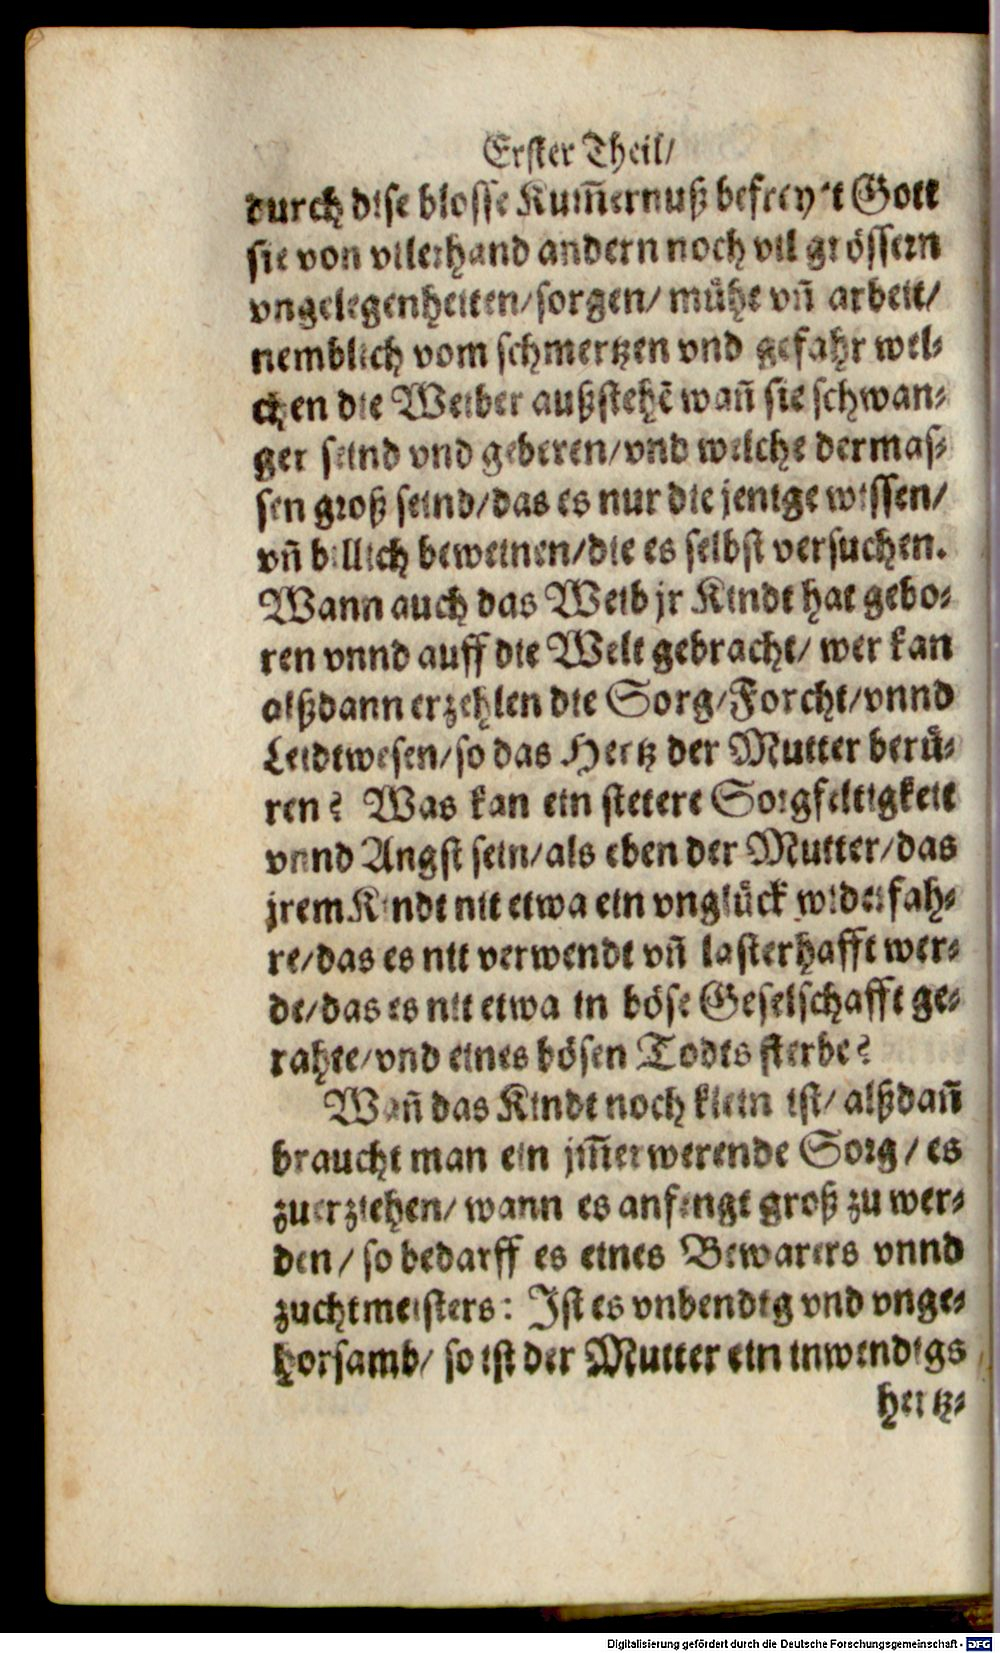 Erster Theil/
durch dise blosse Kum̅ernuß befrey't Gott
sie von vilerhand andern noch vil grössern
vngelegenheiten/sorgen/ mühe vn̅ arbeit/
nemblich vom schmertzen vnd gefahr wel⸗
chen die Weiber außstehē wan̅ sie schwan⸗
ger seind vnd geberen/vnd welche dermas⸗
sen groß seind/das es nur die jenige wissen/
vn̅ billich beweinen/die es selbst versuchen.
Wann auch das Weib jr Kindt hat gebo⸗
ren vnnd auff die Welt gebracht/ wer kan
alßdann erzehlen die Sorg/Forcht/vnnd
Leidtwesen/so das Hertz der Mutter berü⸗
ren? Was kan ein stetere Sorgfeltigkeit
vnnd Angst sein/als eben der Mutter/das
jrem Kindt nit etwa ein vnglück widerfah⸗
re/das es nit verwendt vn̅ lasterhafft wer⸗
de/das es nit etwa in böse Geselschafft ge⸗
rahte/vnd eines bösen Todts sterbe?
Wan̅ das Kindt noch klein ist/ alßdan̅
braucht man ein jm̅erwerende Sorg/ es
zuerziehen/ wann es anfengt groß zu wer⸗
den/ so bedarff es eines Bewarers vnnd
zuchtmeisters: Ist es vnbendig vnd vnge⸗
horsamb/ so ist der Mutter ein inwendigs
hertz⸗
Digitalisierung gefördert durch die Deutsche Forschungsgemeinschaft - DFG